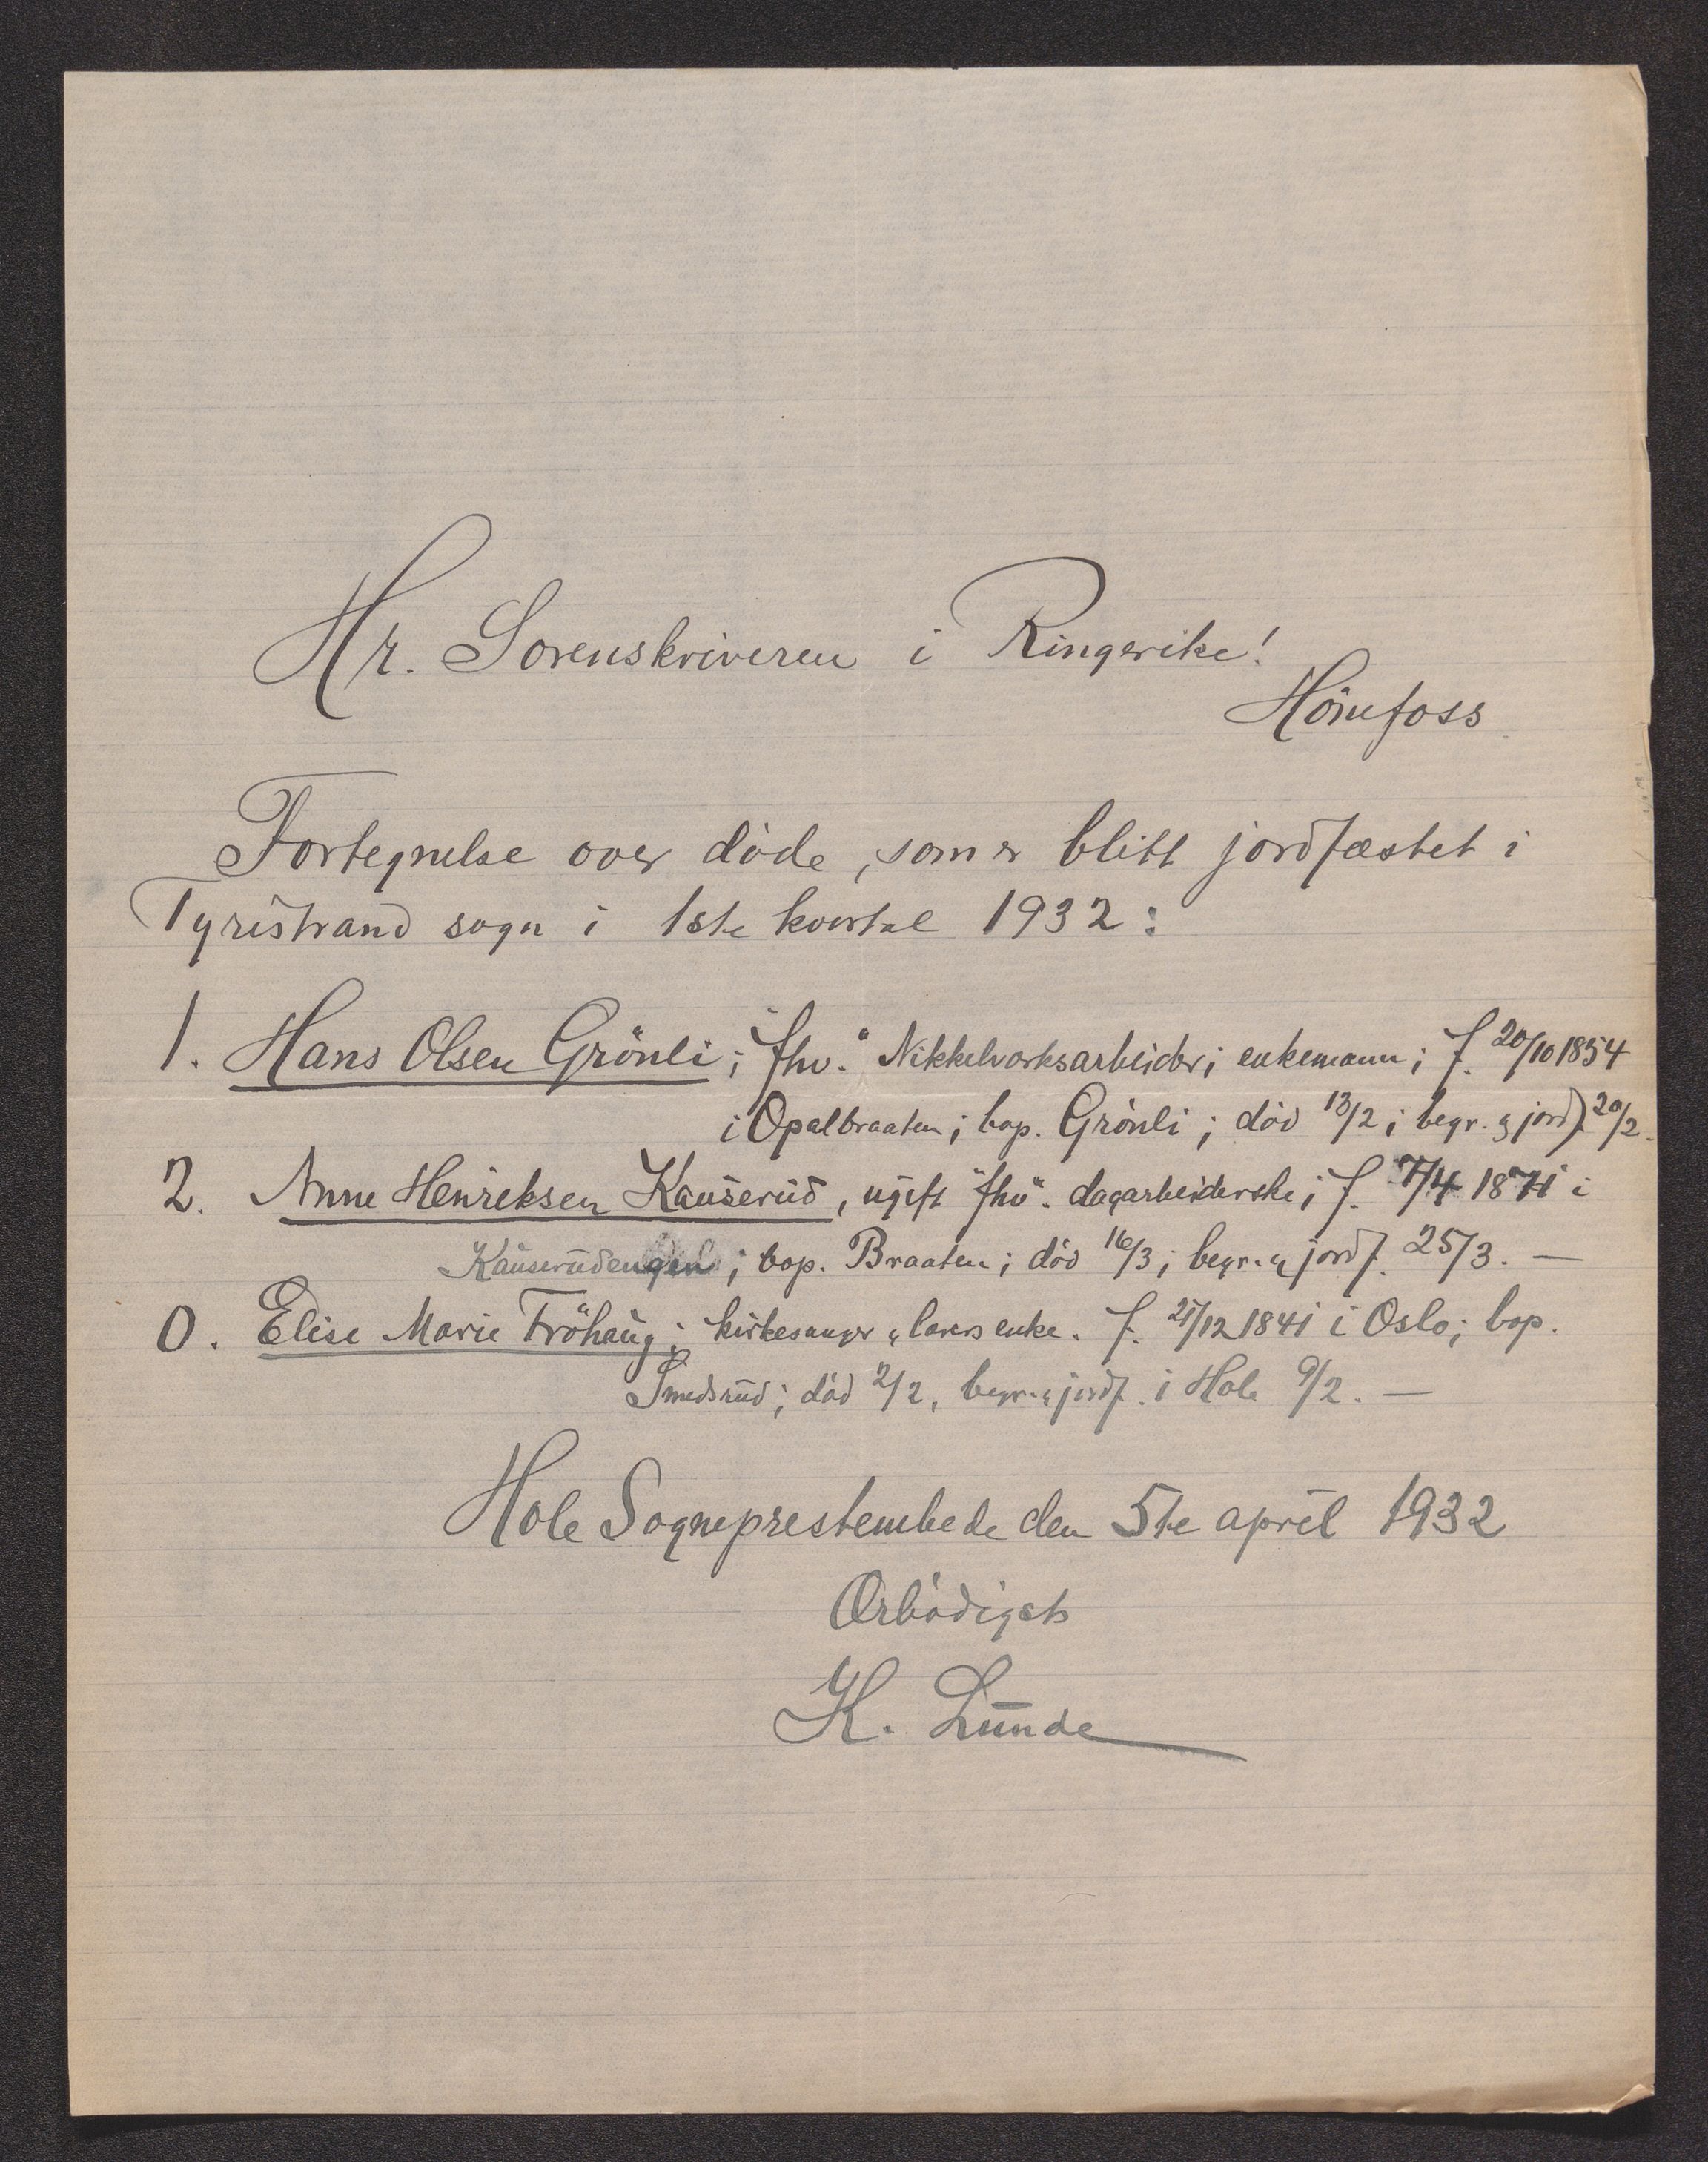 Hr. Sorenskriveren i Ringerike!
Hönefoss
Fortegnelse over döde, som er blitt jordfæstet i
Tyristrand sogn i 1ste kvartal 1932:
1. Hans Olsen Grönli; "fhv." Nikkelverksarbeider; enkemann; f. 20/10 1854
i Opalbraaten; bop. Grönli; död 13/2; begr. & jordf. 20/2.
2. Anne Henriksen Kauserud, ugift "fhv". dagarbeiderske; f. 7/4 1871 i
Kauserudengen; bop. Braaten; död 16/3; begr. & jordf. 25/3. —
0. Elise Marie Fröhaug; kirkesanger & lærers enke. f. 21/12 1841 i Oslo; bop.
Smedsrud; död 2/2, begr. & jordf. i Hole 9/2. —
Hole Sogneprestembede den 5te april 1932
Ærbödigst
K. Lunde